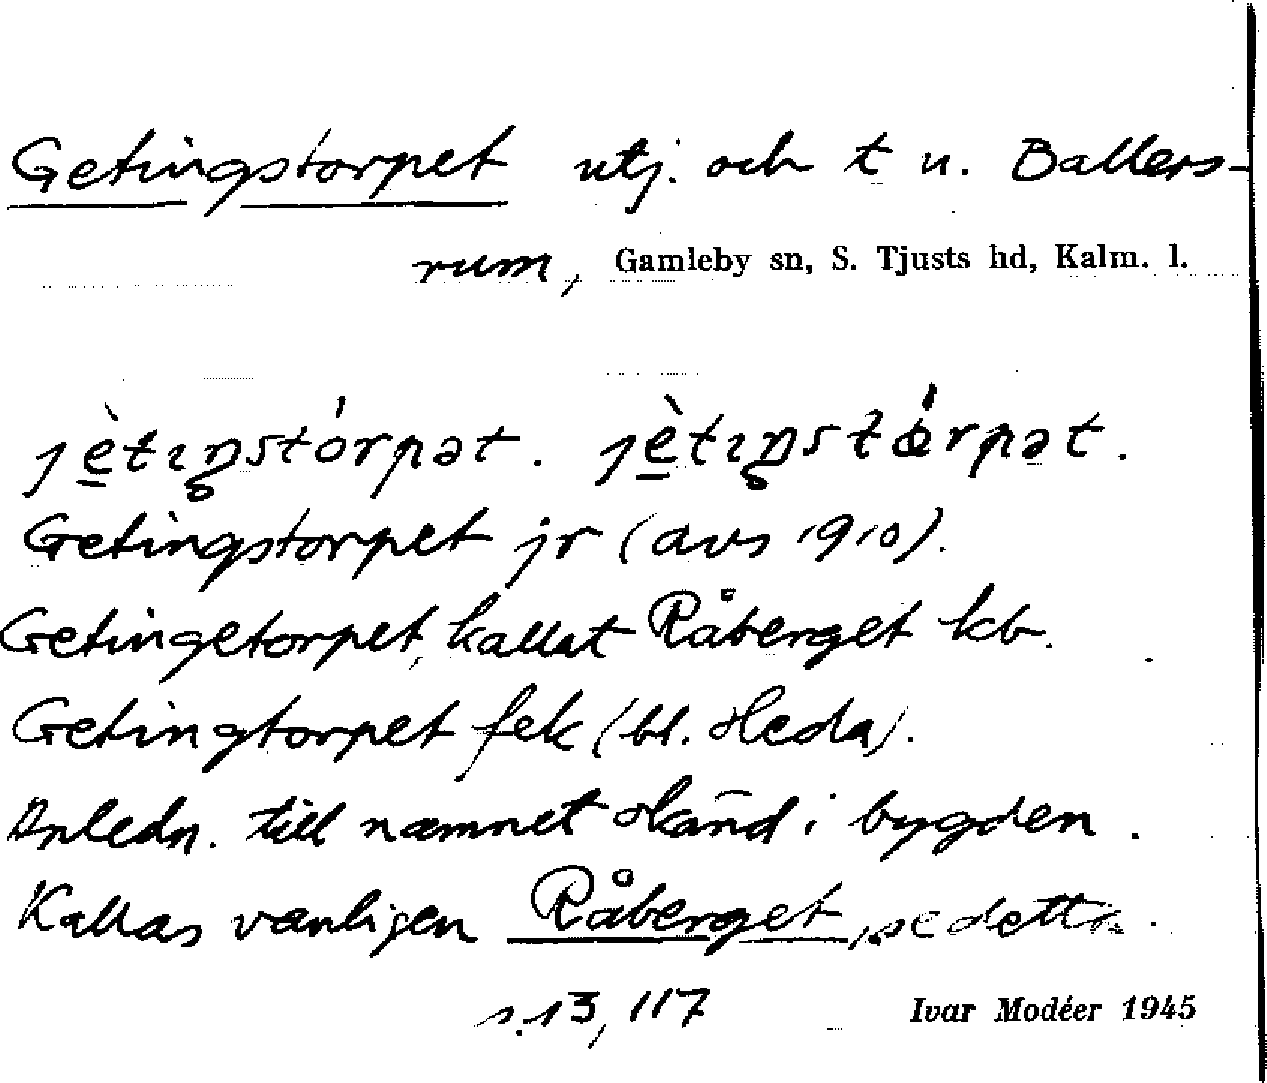 Getingstorpet utj. och t u. Ballers-
rum, Gamleby sn, S. Tjusts hd, Kalm. l.
jètıŋstórpət. jètıŋstǿrpət.
Getingstorpet jr (avs 1910).
Getingetorpet, kallat Råberget kb.
Getingtorpet fek (bl. Heda).
Anledn. till namnet okänd i bygden.
Kallas vanligen Råberget, se detta.
s. 13, 117
Ivar Modéer 1945